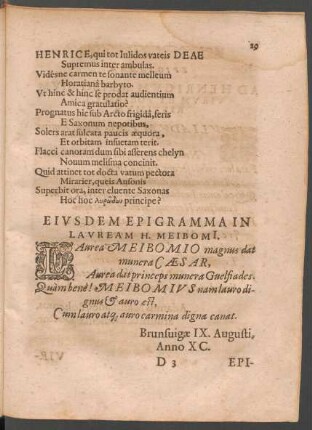 29
HENRICE, qui tot Iulidos vateis DEAE
Supremus inter ambulas.
Vidésne carmen te sonante melleum
Horatianâ barbyto.
Vt hinc & hinc se prodat audientium
Amica gratulatio?
Prognatus hic sub Arcto frigidâ, feris
E Saxonum nepotibus,
Solers arat sulcata paucis æquora,
Et orbitam insuetam terit.
Flacci canoram dum sibi asserens chelyn
Nouum melisma concinit.
Quid attinet tot docta vatum pectora
Mirarier, queis Ausonis
Superbit ora, inter eluente Saxonas
Hoc hoc Augustus principe?
EIVSDEM EPIGRAMMA IN
LAVREAM H. MEIBOMI.
LAurea MEIBOMIO magnus dat
munera CÆSAR,
Aurea dat princeps munera Guelfiades.
Quàm benè! MEIBOMIVS nam lauro di-
gnus & auro est,
Cum lauro atq; auro carmina digna canat.
Brunsuigæ IX. Augusti,
Anno XC.
D 3 EPI-